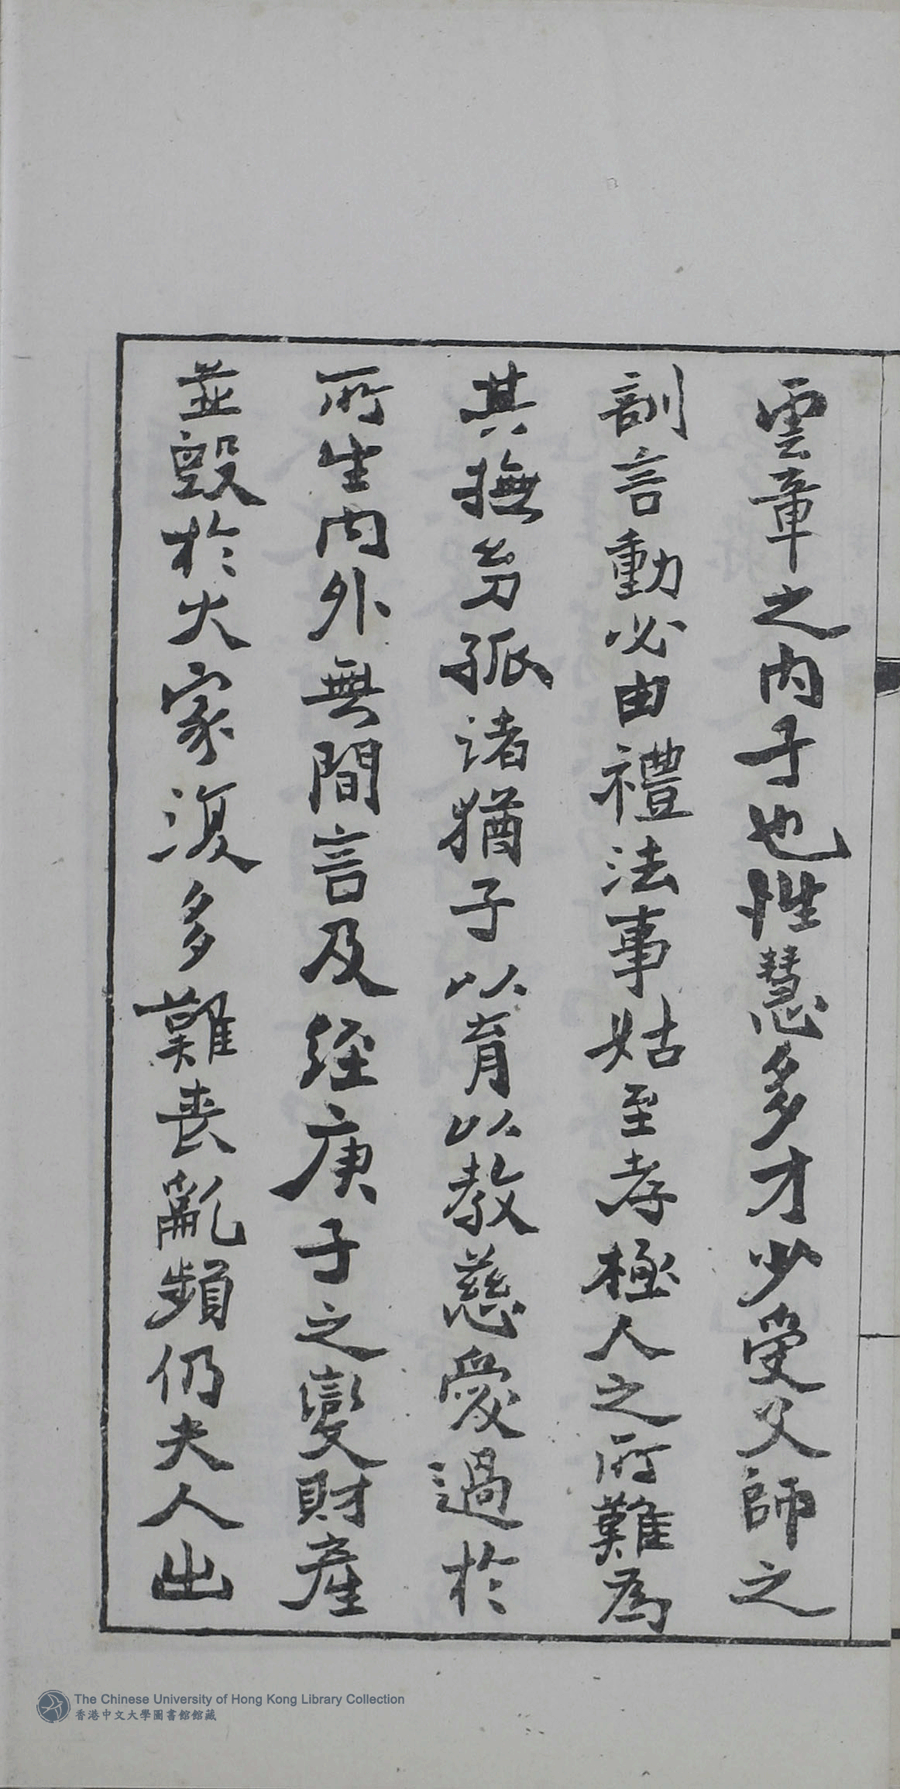 雲章之内子也性慧多才少受父師之
訓言動必由禮法事姑至孝極人之所難為
其撫㓜孤諸猶子以育以教慈愛過於
所生内外無間言及經庚子之變財產
並毀於火家復多難喪亂頻仍夫人出
The Chinese University of Hong Kong Library Collection
香港中文大學圖書館館藏